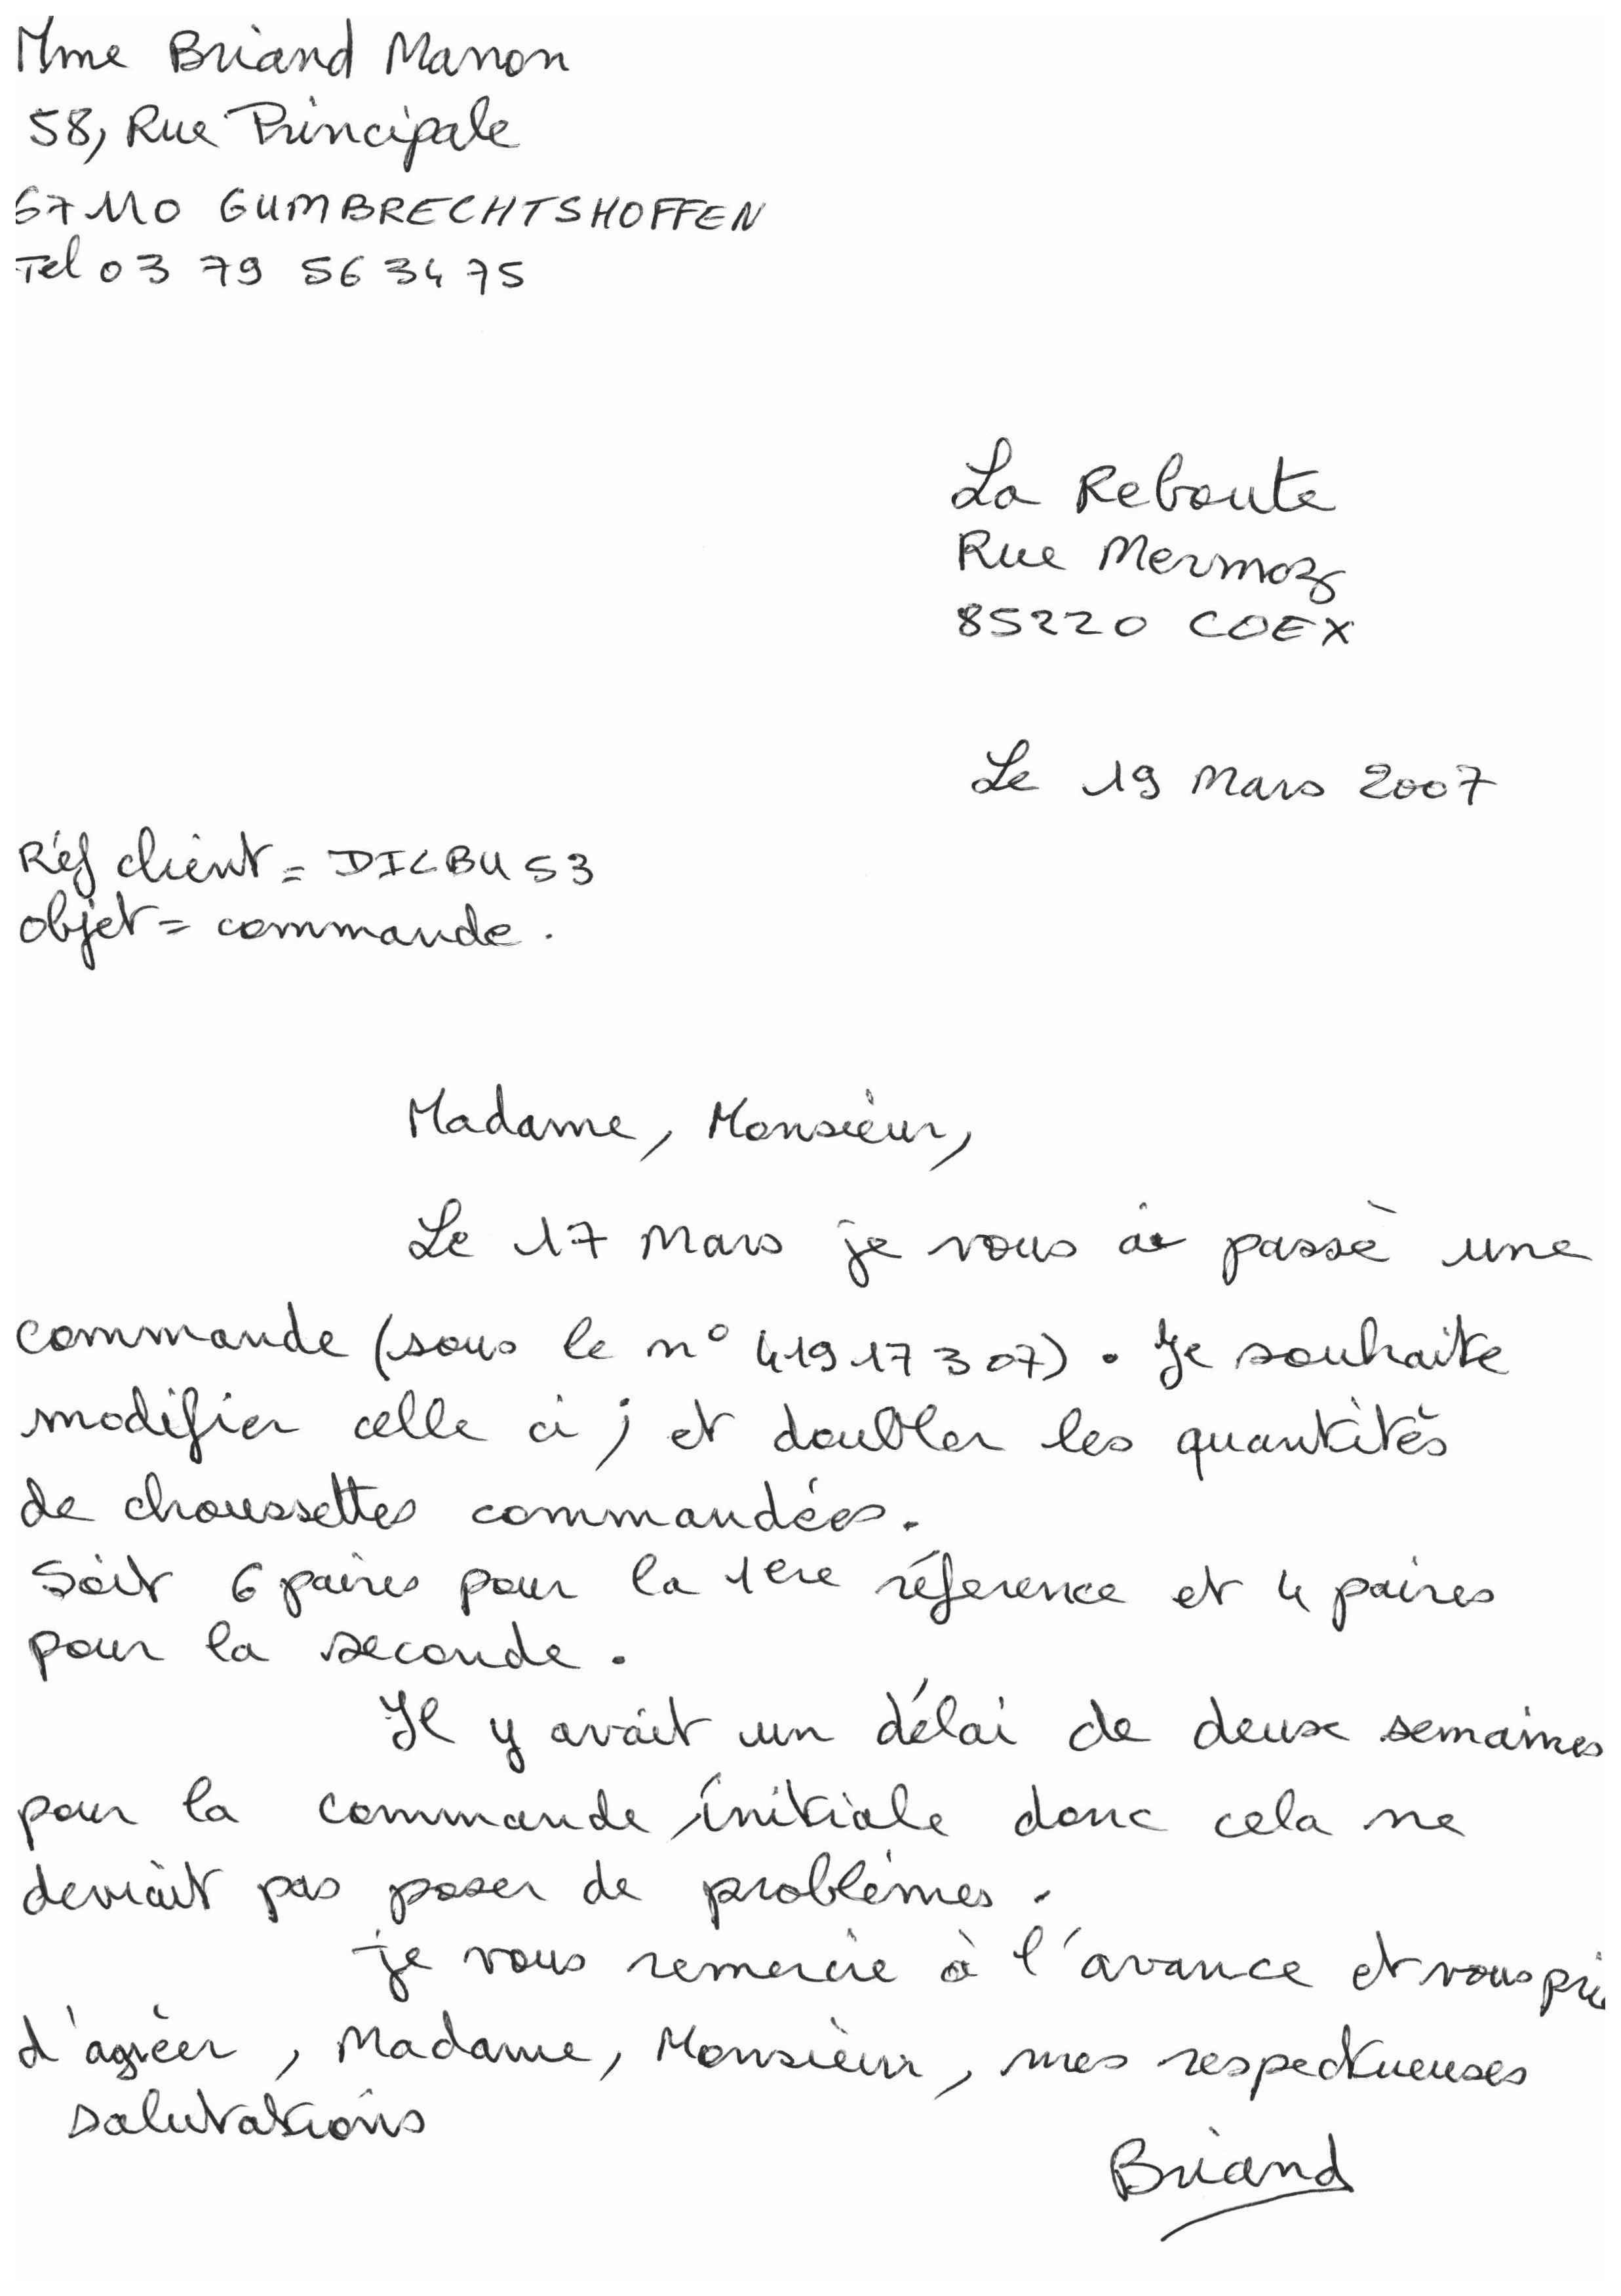 Mme Briand Manon
58, Rue Principale
67110 GUMBRECHTSHOFFEN
Tel 03 79 56 34 75
La Reboute
Rue Mermoz
85220 COEX
Le 19 Mars 2007
Réf client = DILBU53
objet = commande.
Madame, Monsieur,
Le 17 Mars je vous ai passé une
commande (sous le n° 41917307). Je souhaite
modifier celle ci ; et doubler les quantités
de choussettes commandées.
Soit 6 paires pour la 1ere réference et 4 paires
pour la seconde.
Il y avait un délai de deux semaines
pour la commande initiale donc cela ne
devrait pas poser de problèmes.
je vous remercie à l'avance et vous pri
d'agréer, Madame, Monsieur, mes respectueuses
salutations
Briand